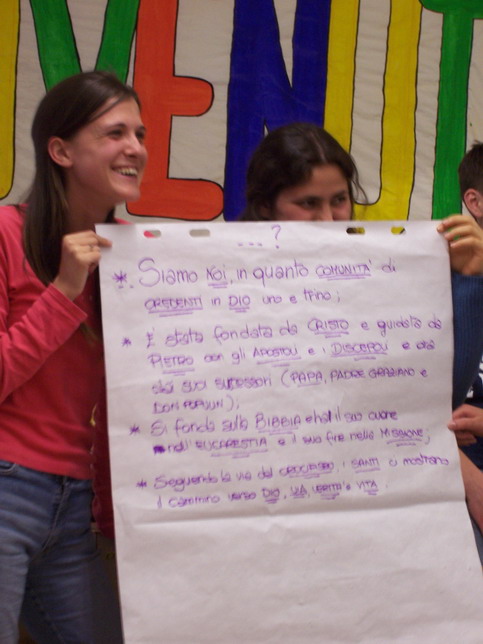 VENUT
... ?
* Siamo NOI, in quanto COMUNITA' di
CREDENTI in DIO uno e trino;
* E' stata fondata da CRISTO e guidata da
PIETRO con gli APOSTOLI e i DISCEPOLI e dai
suoi successori (PAPA, PADRE GRAZIANO e
DON
* Si fonda sulla BIBBIA e ha il suo cuore
nell'EUCARESTIA e il suo fine nella MISSIONE;
* Seguendo la via del CROCIFISSO, i SANTI ci mostrano
il cammino verso DIO, VIA, VERITA' e VITA.